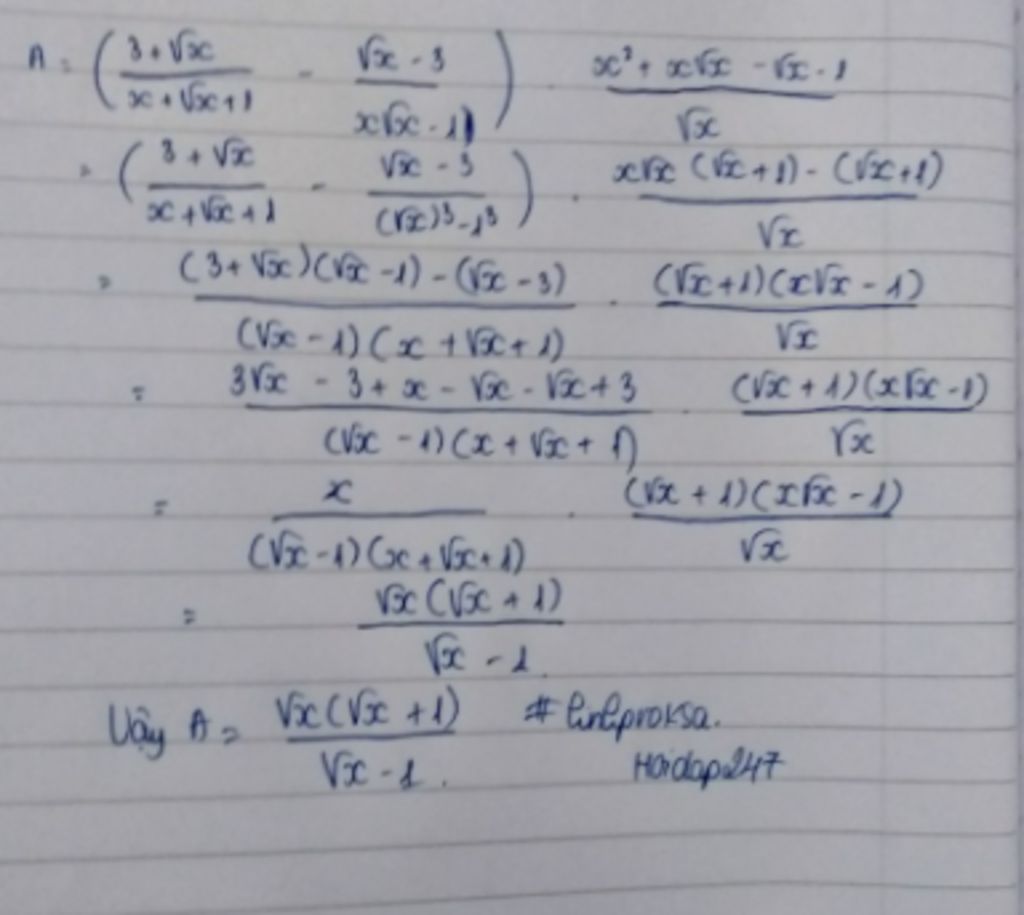 A = ( (3 + √x)/(x + √x + 1) - (√x - 3)/(x√x - 1) ) . (x² + x√x - √x - 1)/√x
= ( (3 + √x)/(x + √x + 1) - (√x - 3)/((√x)³ - 1³) ) . (x√x (√x + 1) - (√x + 1))/√x
= ((3 + √x)(√x - 1) - (√x - 3))/((√x - 1)(x + √x + 1)) . ((√x + 1)(x√x - 1))/√x
= (3√x - 3 + x - √x - √x + 3)/((√x - 1)(x + √x + 1)) . ((√x + 1)(x√x - 1))/√x
= x/((√x - 1)(x + √x + 1)) . ((√x + 1)(x√x - 1))/√x
= (√x (√x + 1))/(√x - 1)
Vậy A = (√x (√x + 1))/(√x - 1) . #
Hoidap247